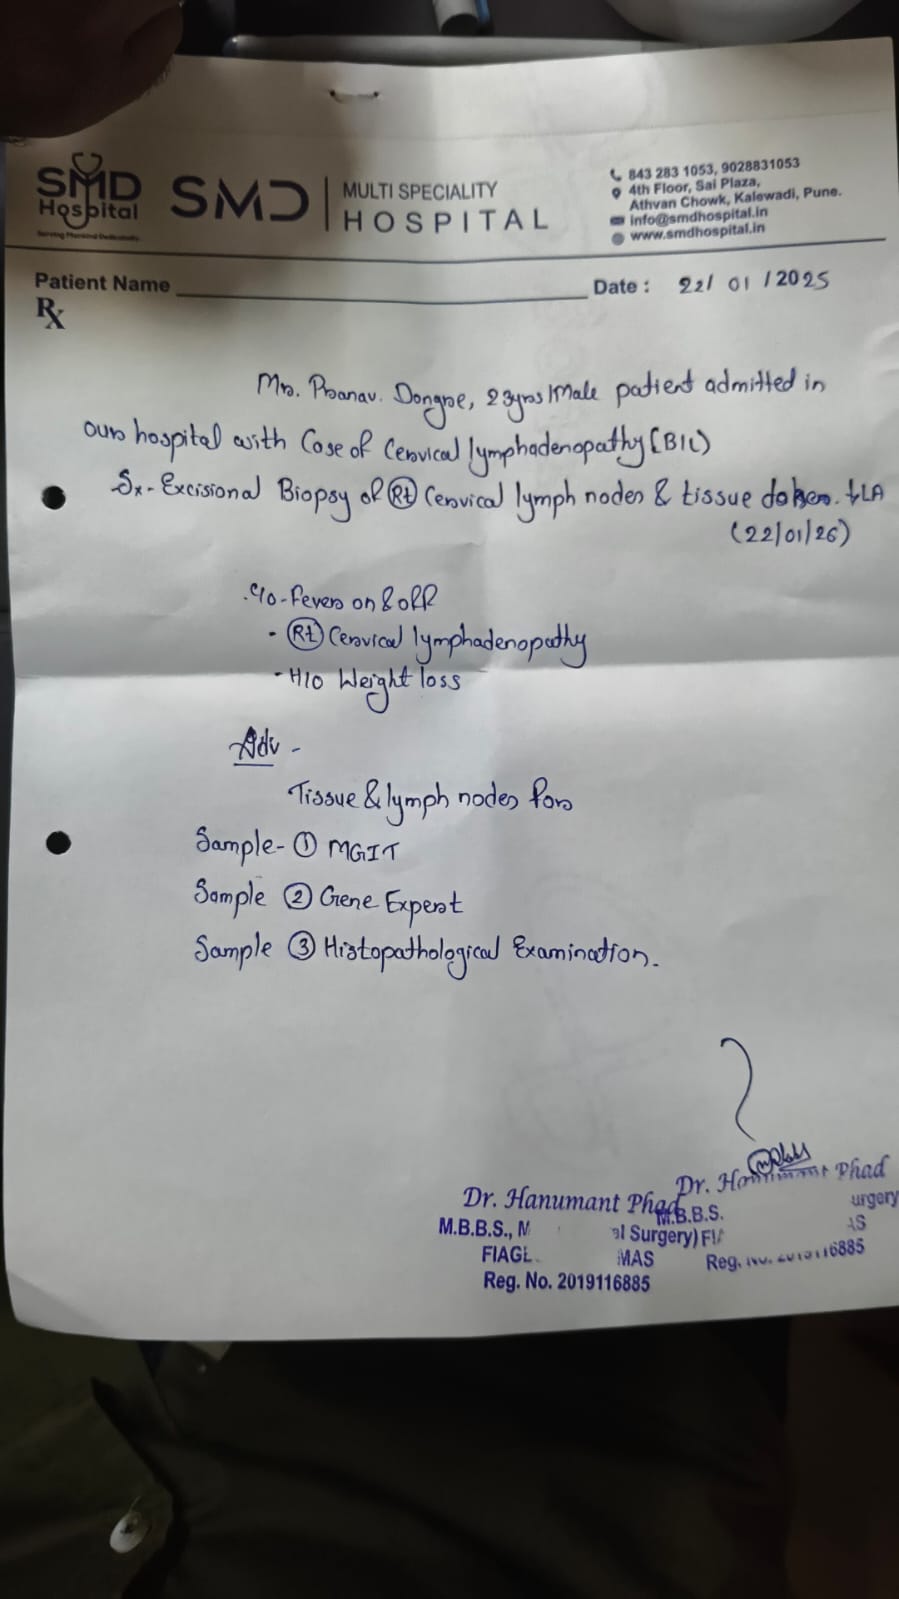 SMD
Hospital
Serving Mankind Dedicatedly
SMD | MULTI SPECIALITY
HOSPITAL
843 283 1053, 9028831053
4th Floor, Sai Plaza,
Athvan Chowk, Kalewadi, Pune.
info@smdhospital.in
www.smdhospital.in
Patient Name
Date : 22/ 01 /2025
Rx
Mr. Pranav. Dongre, 23yrs/Male patient admitted in
our hospital with Case of Cervical lymphadenopathy (B/L)
Sx- Excisional Biopsy of Rt Cervical lymph nodes & tissue taken. ↓LA
(22/01/26)
c/o - Fever on & off
- Rt Cervical lymphadenopathy
- H/O Weight loss
Adv -
Tissue & lymph nodes for
Sample- ① MGIT
Sample ② Gene Expert
Sample ③ Histopathological Examination.
Dr. Hanumant Phad
M.B.B.S., M al Surgery)
FIAGE MAS
Reg. No. 2019116885
Dr. Phad
M.B.B.S. urgery
FI AS
Reg. No. 2019116885